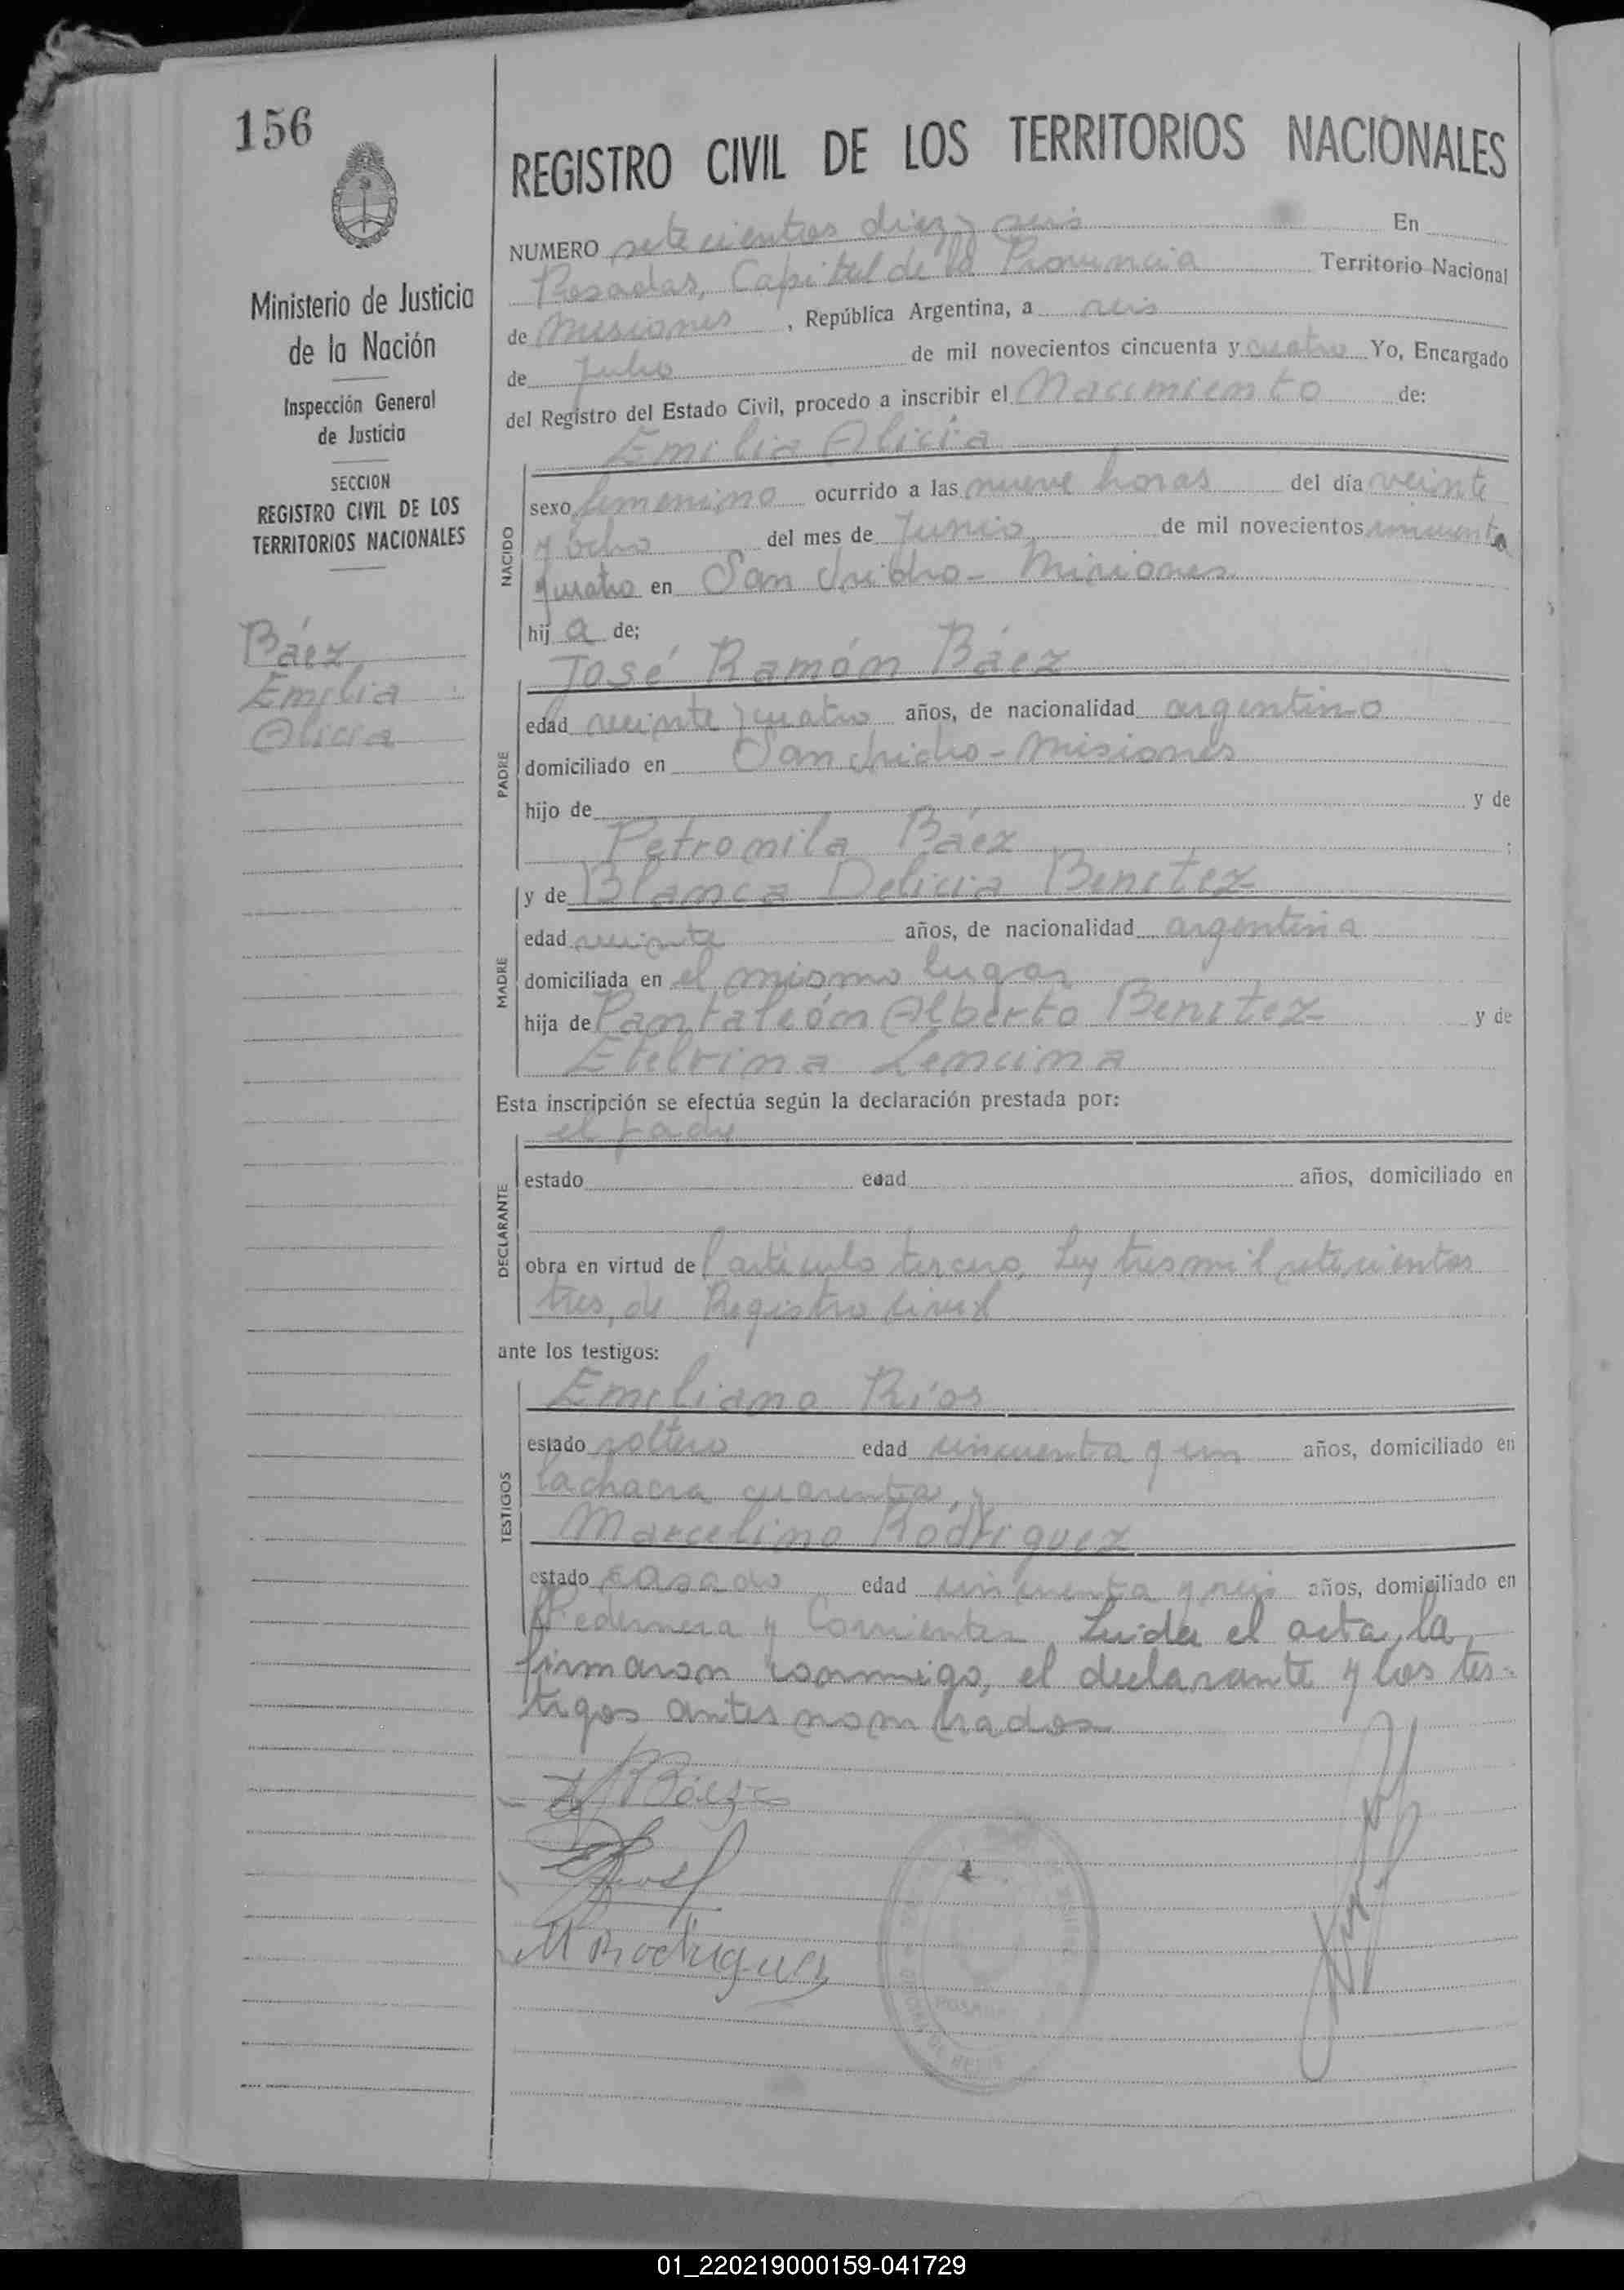 156
REGISTRO CIVIL DE LOS TERRITORIOS NACIONALES
NUMERO setecientos diez y seis En
Posadas, Capital de la Provincia Territorio Nacional
de Misiones, República Argentina, a seis
de Julio de mil novecientos cincuenta y cuatro Yo, Encargado
del Registro del Estado Civil, procedo a inscribir el Nacimiento de:
Ministerio de Justicia
de la Nación
Inspección General
de Justicia
SECCION
REGISTRO CIVIL DE LOS
TERRITORIOS NACIONALES
Báez,
Emilia
Alicia
NACIDO
Emilia Alicia
sexo femenino ocurrido a las nueve horas del día veinte
y ocho del mes de Junio, de mil novecientos cincuenta
y cuatro en San Isidro - Misiones
hij a de;
PADRE
José Ramón Báez
edad veinte y cuatro años, de nacionalidad argentino
domiciliado en San Isidro - Misiones
hijo de y de
Petronila Báez ;
MADRE
y de Blanca Delicia Benitez
edad veinte años, de nacionalidad argentina
domiciliada en el mismo lugar
hija de Pantaleón Alberto Benitez y de
Etelvina Lencina
Esta inscripción se efectúa según la declaración prestada por:
DECLARANTE
el padre
estado edad años, domiciliado en
obra en virtud del artículo tercero, Ley tres mil setecientos
tres, de Registro Civil
ante los testigos:
TESTIGOS
Emiliano Ríos
estado soltero edad cincuenta y un años, domiciliado en
la chacra cuarenta, y
Marcelino Rodriguez
estado casado edad cincuenta y seis años, domiciliado en
Pedernera y Corrientes. Leida el acta, la
firmaron conmigo, el declarante y los tes-
tigos antes nombrados
Báez
M Rodriguez
POSADAS
01_220219000159-041729